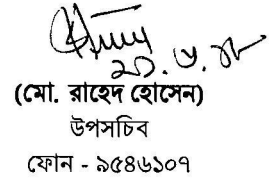 ২১.৬.১৮
(মো. রাহেদ হোসেন)
উপসচিব
ফোন - ৯৫৪৬১০৭